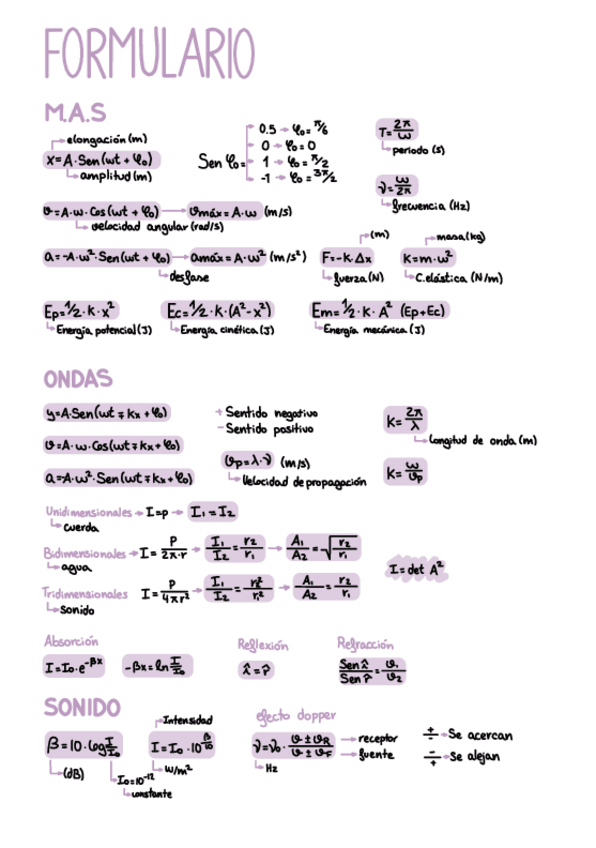 FORMULARIO
M.A.S
elongación (m)
x=A·Sen(wt + φ₀)
amplitud (m)
Sen φ₀=
0.5 → φ₀= π/6
0 → φ₀=0
1 → φ₀= π/2
-1 → φ₀= 3π/2
T= 2π/ω
período (s)
ν= ω/2π
frecuencia (Hz)
v=A·w·Cos(wt + φ₀) → vmáx=A·w (m/s)
velocidad angular (rad/s)
a=-A·w²·Sen(wt + φ₀) → amáx=A·w² (m/s²)
desfase
(m)
F=-K·Δx
fuerza (N)
masa (kg)
K=m·w²
C.elástica (N/m)
Ep=1/2·K·x²
Energía potencial (J)
Ec=1/2·K·(A²-x²)
Energía cinética (J)
Em=1/2·K·A² (Ep+Ec)
Energía mecánica (J)
ONDAS
y=A·Sen(wt ∓ kx + φ₀)
v=A·w·Cos(wt ∓ kx + φ₀)
a=-A·w²·Sen(wt ∓ kx + φ₀)
+ Sentido negativo
- Sentido positivo
vp=λ·ν (m/s)
Velocidad de propagación
K= 2π/λ
Longitud de onda (m)
K= ω/vp
Unidimensionales → I=p → I₁=I₂
cuerda
Bidimensionales → I= P/2π·r → I₁/I₂ = r₂/r₁ → A₁/A₂ = √r₂/r₁
agua
Tridimensionales I= P/4πr² → I₁/I₂ = r₂²/r₁² → A₁/A₂ = r₂/r₁
sonido
I=det A²
Absorción
I=I₀·e^-βx
-βx=ln I/I₀
Reflexión
î=r̂
Refracción
Sen î/Sen r̂ = v₁/v₂
SONIDO
β=10·log I/I₀
(dB)
I₀=10⁻¹²
constante
Intensidad
I=I₀·10^β/10
W/m²
efecto dopper
ν=ν₀· v ± vR/v ± vF
receptor
fuente
Hz
+/÷ → Se acercan
-/÷ → Se alejan